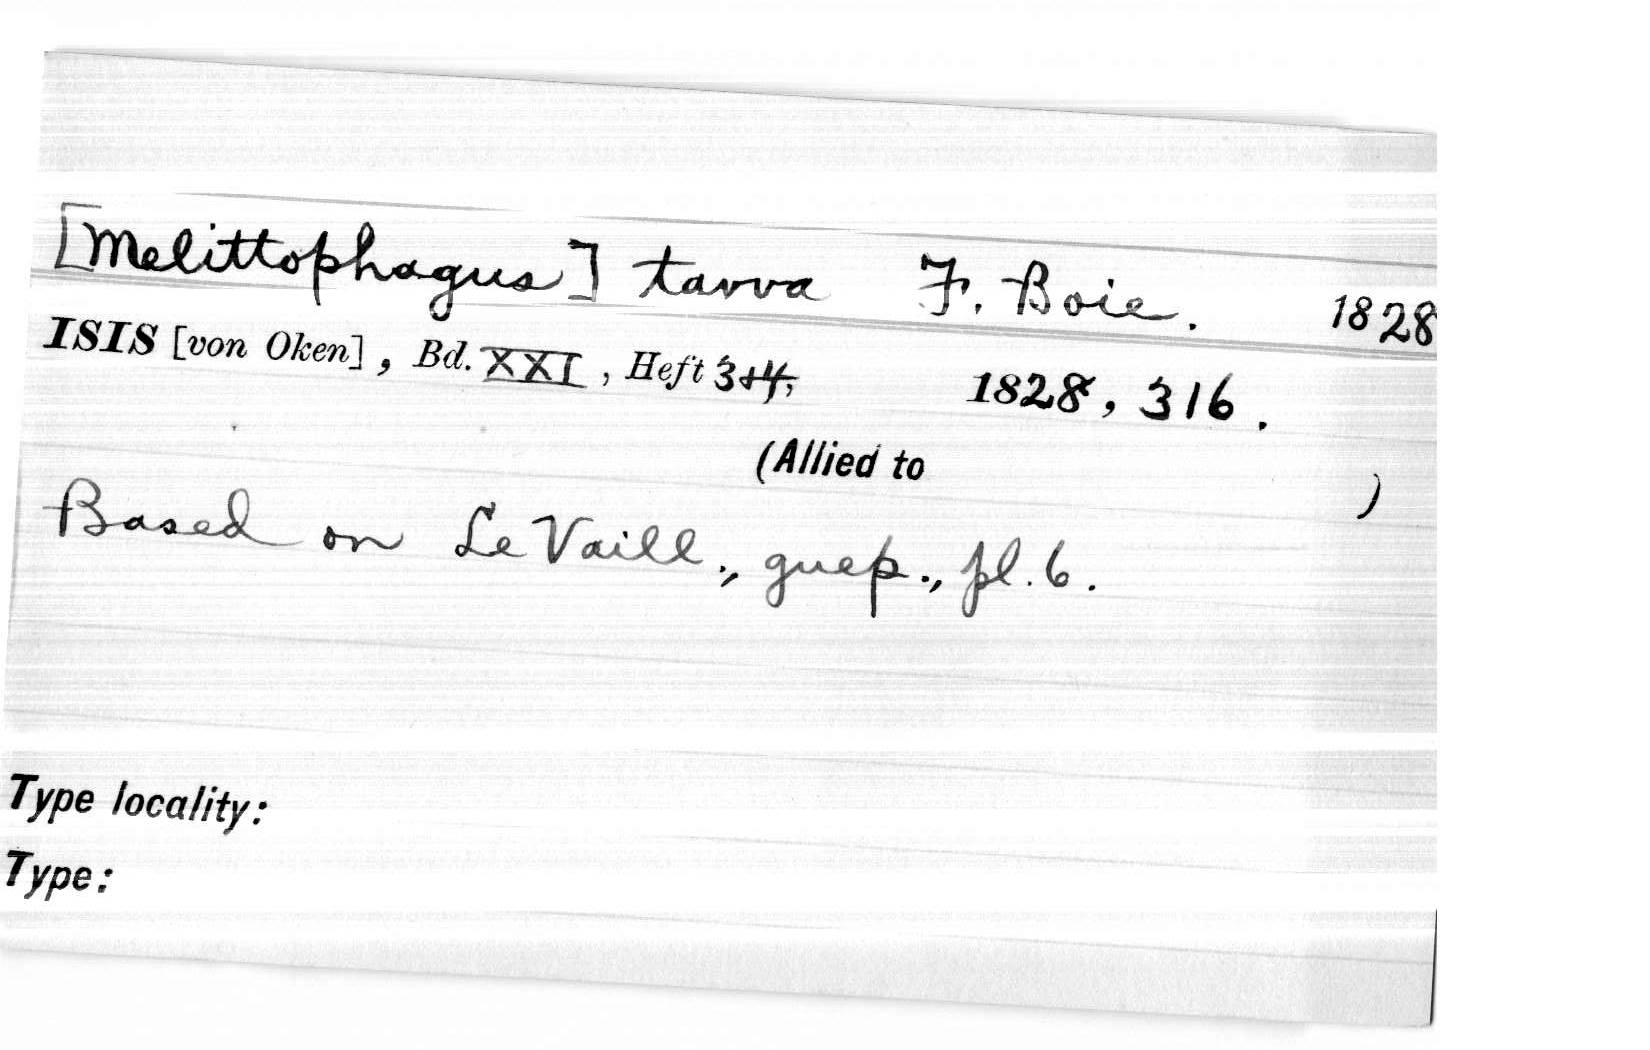 [Melittophagus] tawa F. Boie. 1828
ISIS [von Oken], Bd. XXI, Heft 3+4, 1828, 316.
(Allied to )
Based on Le Vaill., guep., pl. 6.
Type locality:
Type: